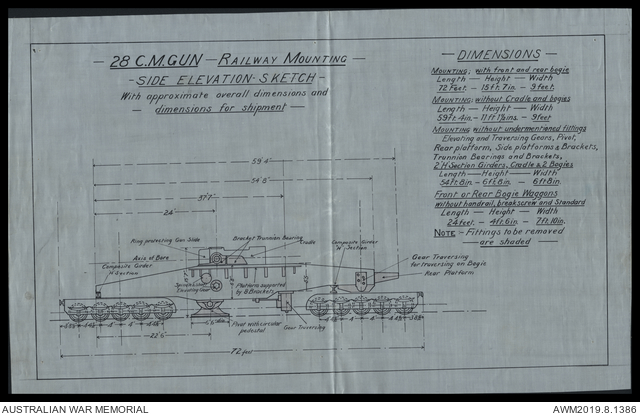 28 C.M. GUN — RAILWAY MOUNTING —
- SIDE ELEVATION SKETCH -
With approximate overall dimensions and
— dimensions for shipment —
— DIMENSIONS —
MOUNTING; with front and rear bogie
Length — Height — Width
72 feet. — 15 ft. 7in. — 9 feet.
MOUNTING; without Cradle and bogies
Length — Height — Width
59 ft. 4in. — 11 ft. 1½ins. — 9 feet
MOUNTING without undermentioned fittings
Elevating and Traversing Gears, Pivot,
Rear platform, Side platforms & Brackets,
Trunnion Bearings and Brackets,
2 'H' Section Girders, Cradle & 2 Bogies
Length — Height — Width
54 ft 8in. — 6 ft 8in. — 6 ft 8in.
Front or Rear Bogie Waggons
Without handrail, breakscrew and Standard
Length — Height — Width
24 feet. — 4 ft. 6in. — 7 ft. 10in.
NOTE — Fittings to be removed
— are shaded —
59' 4"
54' 8"
37' 7"
24'
Ring protecting Gun Slide
Bracket Trunnion Bearing
Cradle
Axis of Bore
Composite Girder
'H' Section
Composite Girder
'H' Section
Gear Traversing
for traversing on Bogie
Rear Platform
Elevating Gear
Platform supported
by 8 Brackets
Pivot with circular
pedestal
Gear Traversing
22' 6"
72 feet
AUSTRALIAN WAR MEMORIAL
AWM2019.8.1386